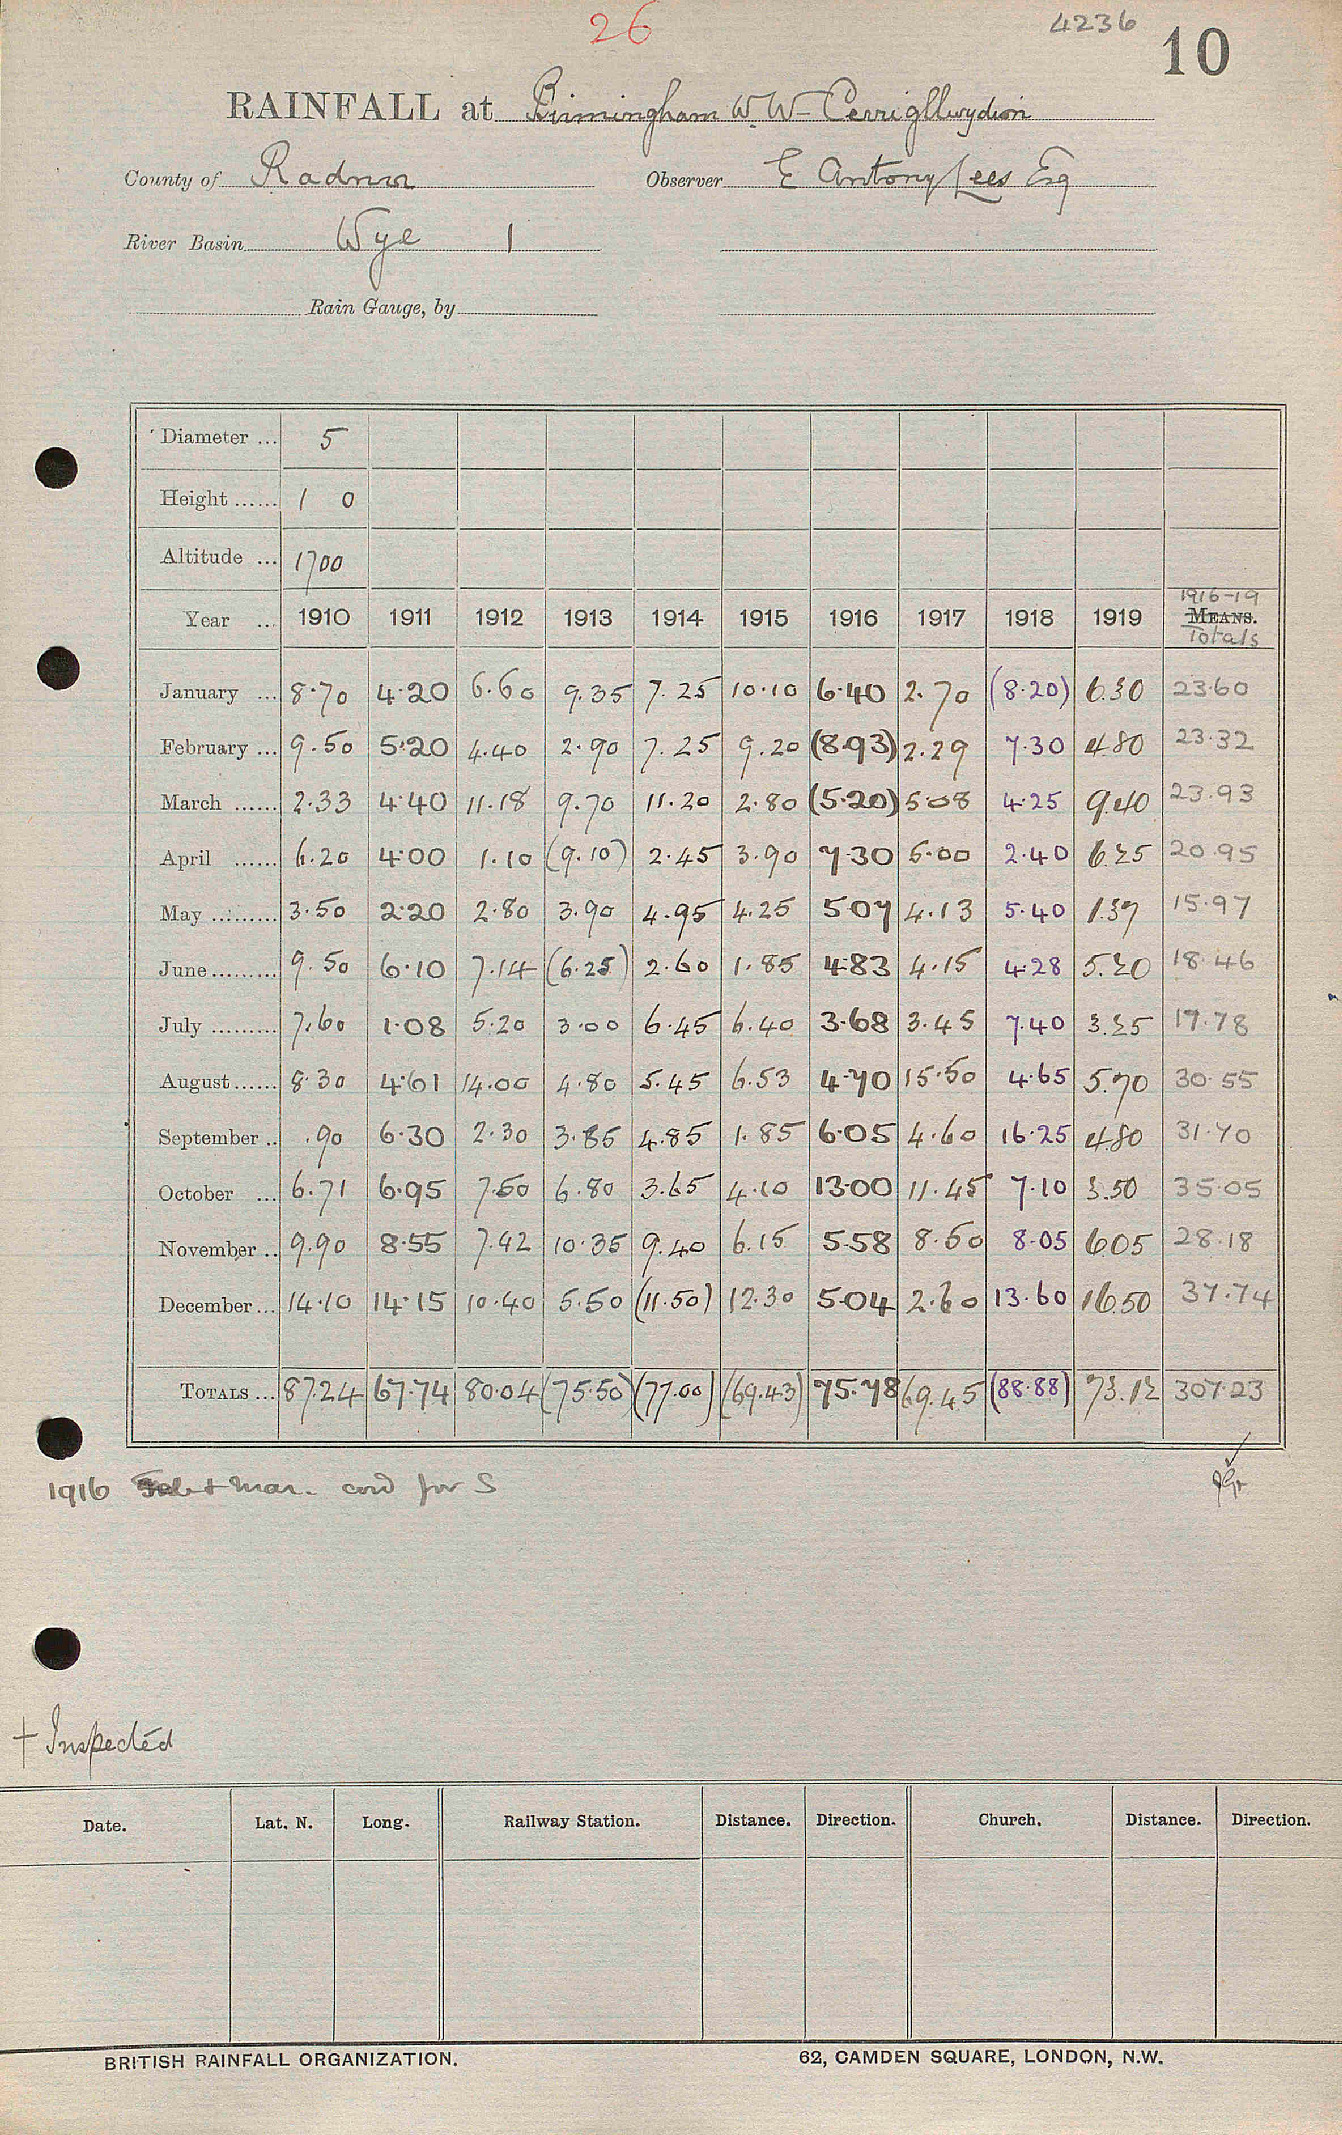 26
4236
10
RAINFALL at Birmingham W.W- Cerrigllwydion
County of Radnor Observer E Antony Lees Esq
River Basin Wye 1
Rain Gauge, by
Diameter ... 5
Height ...... 1 0
Altitude ... 1700
1916-19
Year ... 1910 1911 1912 1913 1914 1915 1916 1917 1918 1919 MEANS.
Totals
January ... 8.70 4.20 6.60 9.35 7.25 10.10 6.40 2.70 (8.20) 6.30 23.60
February ... 9.50 5.20 4.40 2.90 7.25 9.20 (8.93) 2.29 7.30 4.80 23.32
March ...... 2.33 4.40 11.18 9.70 11.20 2.80 (5.20) 5.08 4.25 9.40 23.93
April ...... 6.20 4.00 1.10 (9.10) 2.45 3.90 7.30 5.00 2.40 6.25 20.95
May ......... 3.50 2.20 2.80 3.90 4.95 4.25 5.07 4.13 5.40 1.37 15.97
June ......... 9.50 6.10 7.14 (6.25) 2.60 1.85 4.83 4.15 4.28 5.20 18.46
July ......... 7.60 1.08 5.20 3.00 6.45 6.40 3.68 3.45 7.40 3.25 17.78
August ...... 8.30 4.61 14.00 4.80 5.45 6.53 4.70 15.50 4.65 5.70 30.55
September .. .90 6.30 2.30 3.85 4.85 1.85 6.05 4.60 16.25 4.80 31.70
October ... 6.71 6.95 7.50 6.80 3.65 4.10 13.00 11.45 7.10 3.50 35.05
November .. 9.90 8.55 7.42 10.35 9.40 6.15 5.58 8.50 8.05 6.05 28.18
December ... 14.10 14.15 10.40 5.50 (11.50) 12.30 5.04 2.60 13.60 16.50 37.74
TOTALS ... 87.24 67.74 80.04 (75.50) (77.00) (69.43) 75.78 69.45 (88.88) 73.12 307.23
1916 Feb + Mar. cord for S
+ Inspected
Date. Lat. N. Long. Railway Station. Distance. Direction. Church. Distance. Direction.
BRITISH RAINFALL ORGANIZATION. 62, CAMDEN SQUARE, LONDON, N.W.